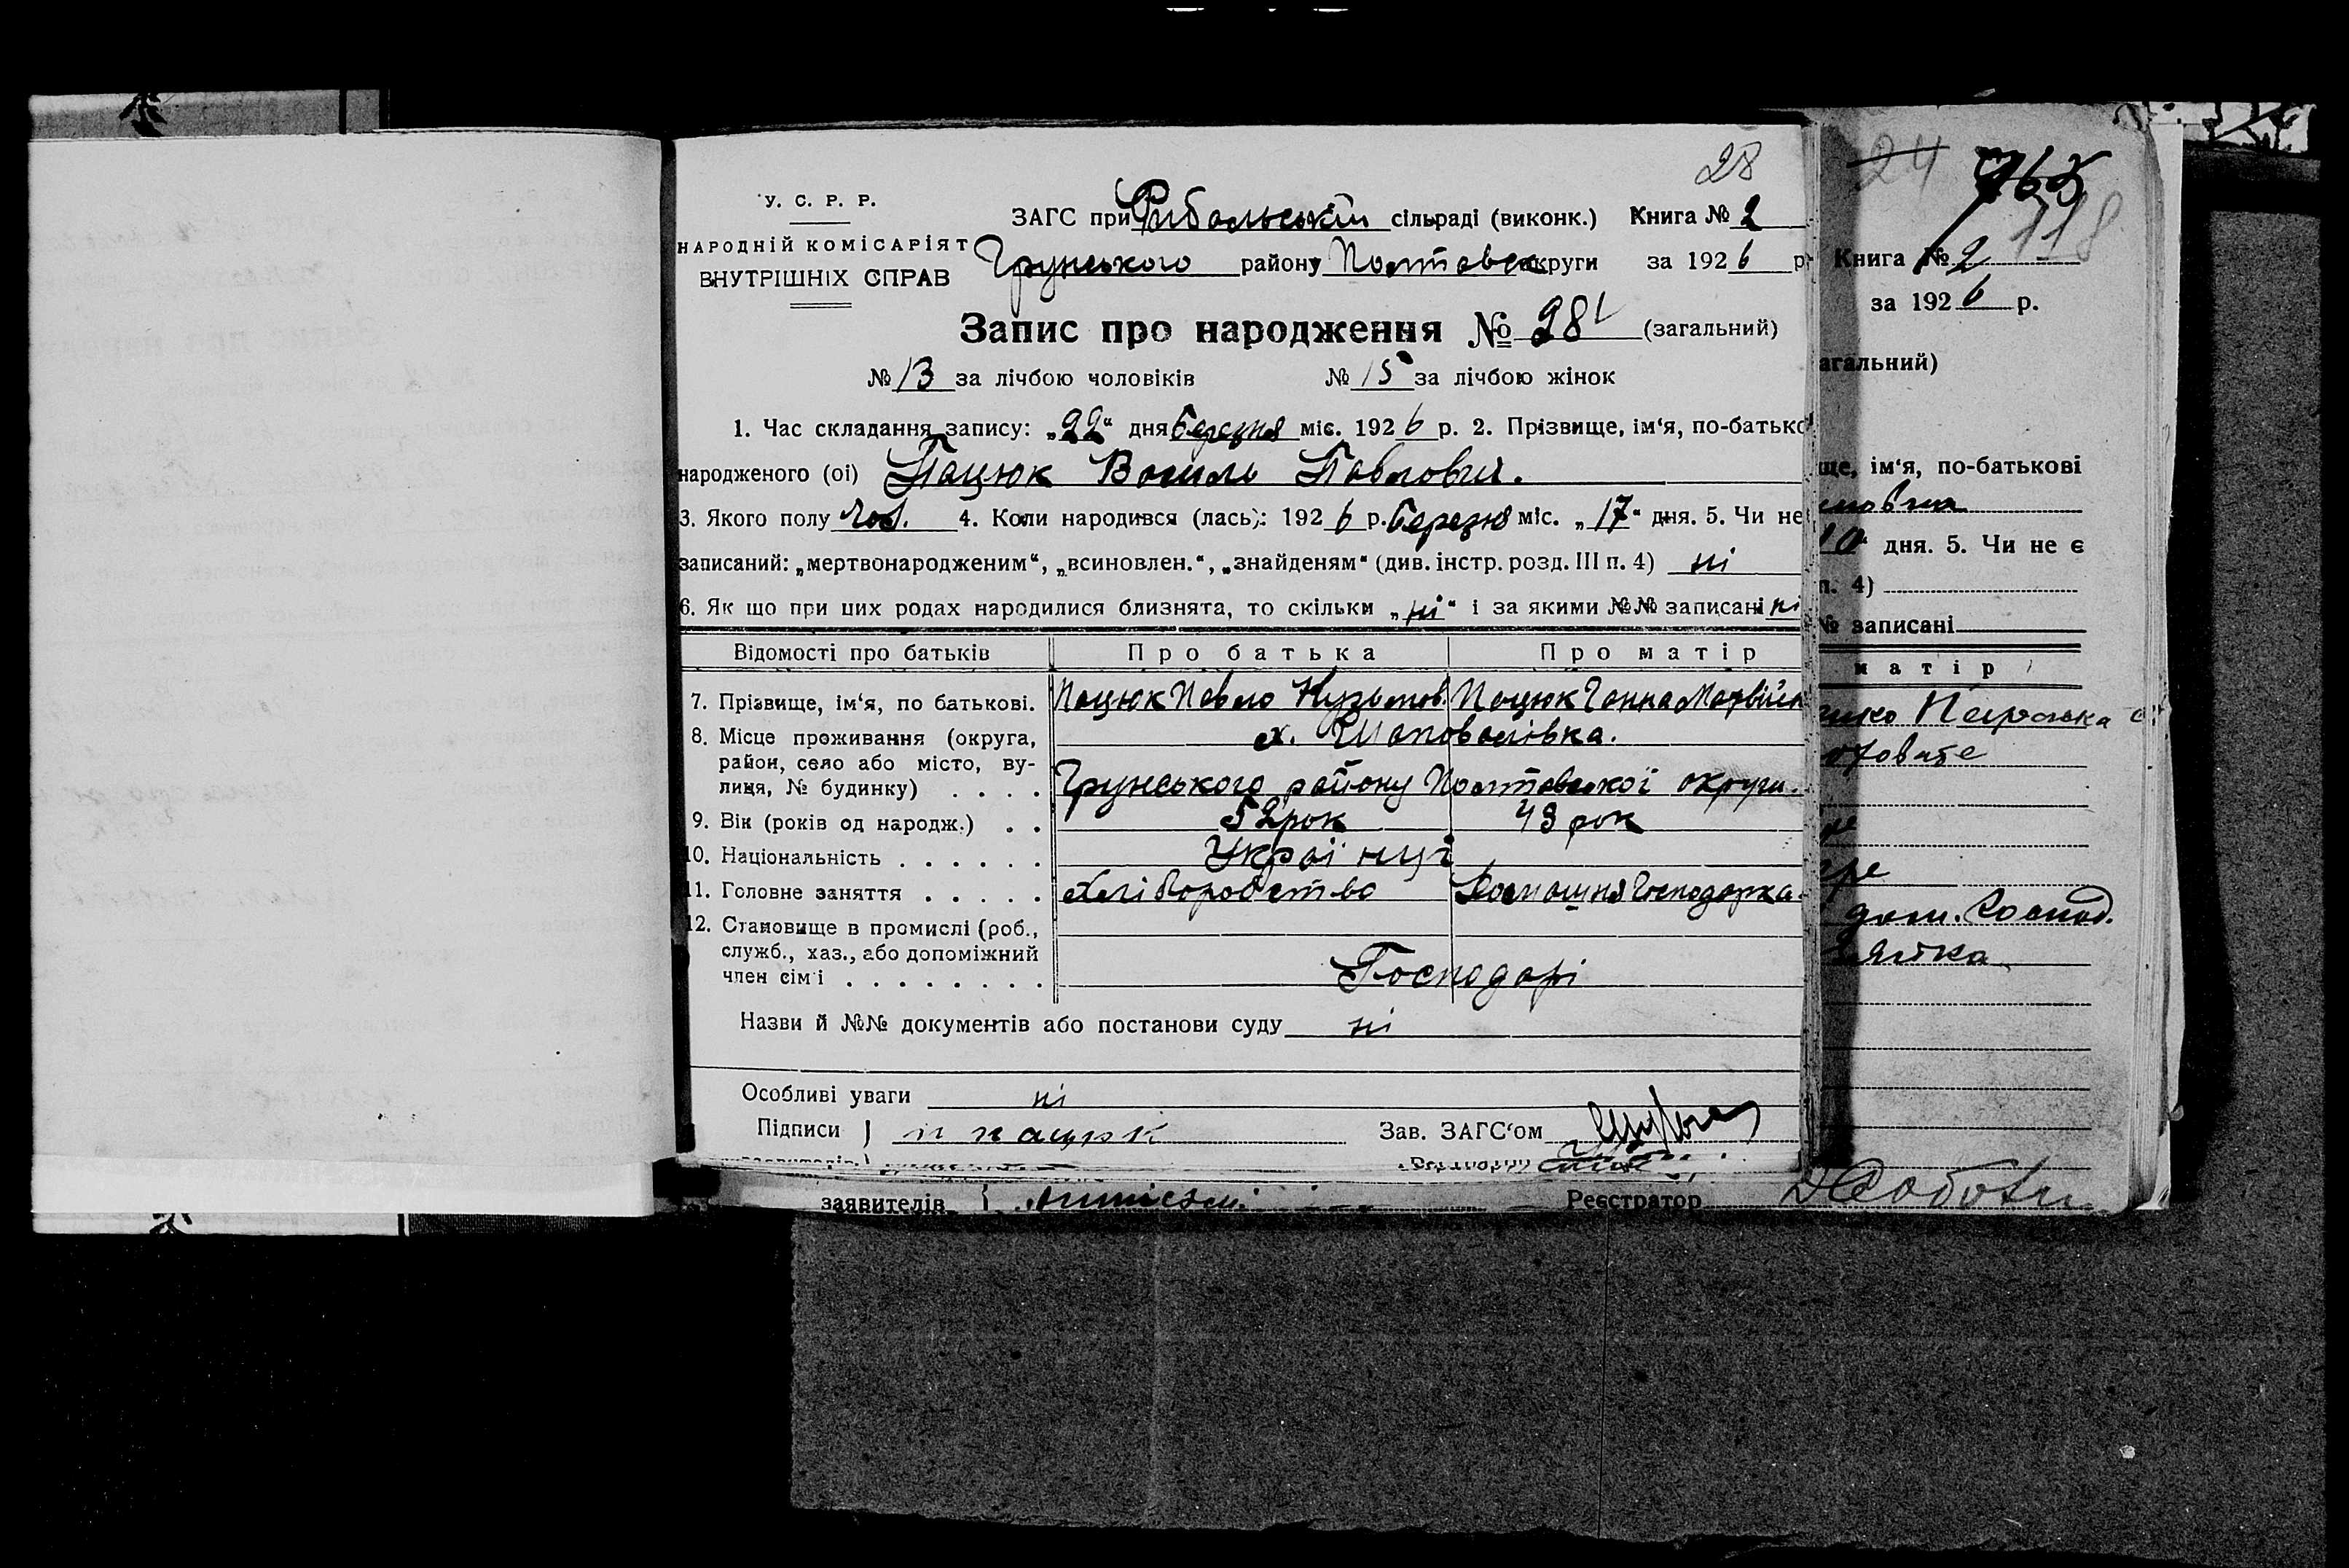 28
У. С. Р. Р.
ЗАГС при Рибальській сільраді (виконк.) Книга № 2
НАРОДНІЙ КОМІСАРІЯТ
ВНУТРІШНІХ СПРАВ
Грунського району Полтавськ округи за 1926 р
Запис про народження № 28 (загальний)
№ 13 за лічбою чоловіків № 15 за лічбою жінок
1. Час складання запису: „22“ дня березня міс. 1926 р. 2. Прізвище, ім‘я, по-батько
народженого (ої) Пацюк Василь Павлович.
3. Якого полу чол. 4. Коли народився (лась): 1926 р. березня міс. „17“ дня. 5. Чи не
записаний: „мертвонародженим“, „всиновлен.“, „знайденям“ (див. інстр. розд. III п. 4) ні
6. Як що при цих родах народилися близнята, то скільки „ні“ і за якими №№ записані ні
Відомості про батьків Про батька Про матір
7. Прізвище, ім‘я, по батькові. Пацюк Павло Кузьмов. Пацюк Ганна Матвійов
8. Місце проживання (округа, х. Шаповалівка.
район, село або місто, ву-
лиця, № будинку) . . . . Грунського району Полтавської округи.
9. Вік (років од народж.) . . 52 рок 43 рок
10. Національність . . . . . . Українці
11. Головне заняття . . . . . Хліборобство Домашня господарка.
12. Становище в промислі (роб.,
служб., хаз., або допоміжний
член сім‘ї . . . . . . . . Господарі
Назви й №№ документів або постанови суду ні
Особливі уваги ні
Підписи } п пацюк Зав. ЗАГС‘ом
заявителів { Реєстратор
24
118
Книга № 2
за 1926 р.
агальний)
ще, ім‘я, по-батькові
10 дня. 5. Чи не є
п. 4)
№ записані
матір
дом. господ.